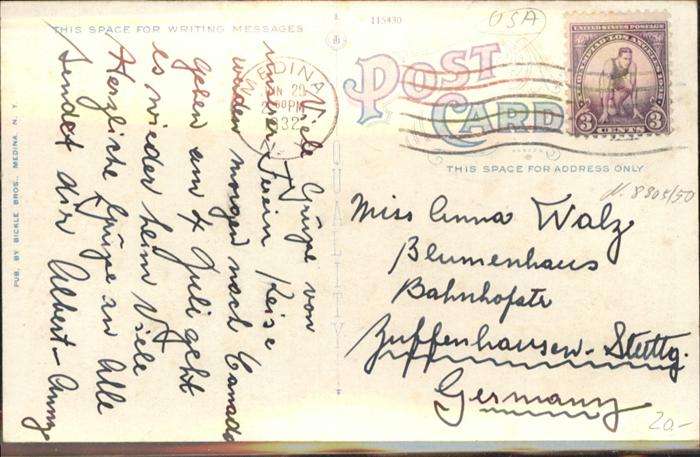 THIS SPACE FOR WRITING MESSAGES
115430
USA
POST
CARD
THIS SPACE FOR ADDRESS ONLY
QUALITY
PUB. BY BICKLE BROS., MEDINA, N. Y.
MEDINA
29
PM
32
UNITED STATES POSTAGE
3 CENTS 3
Viele Grüße von
unserer Ferien Reise
werden morgen nach Canada
gehen am 4 Juli geht
es wieder heim Viele
Herzliche Grüße an Alle
sendet dir Albert - Anny
Miss Anna Walz
Blumenhaus
Bahnhofstr
Zuffenhausen - Stuttg.
Germany
20-